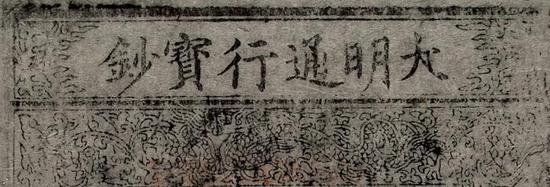 大明通行寶鈔